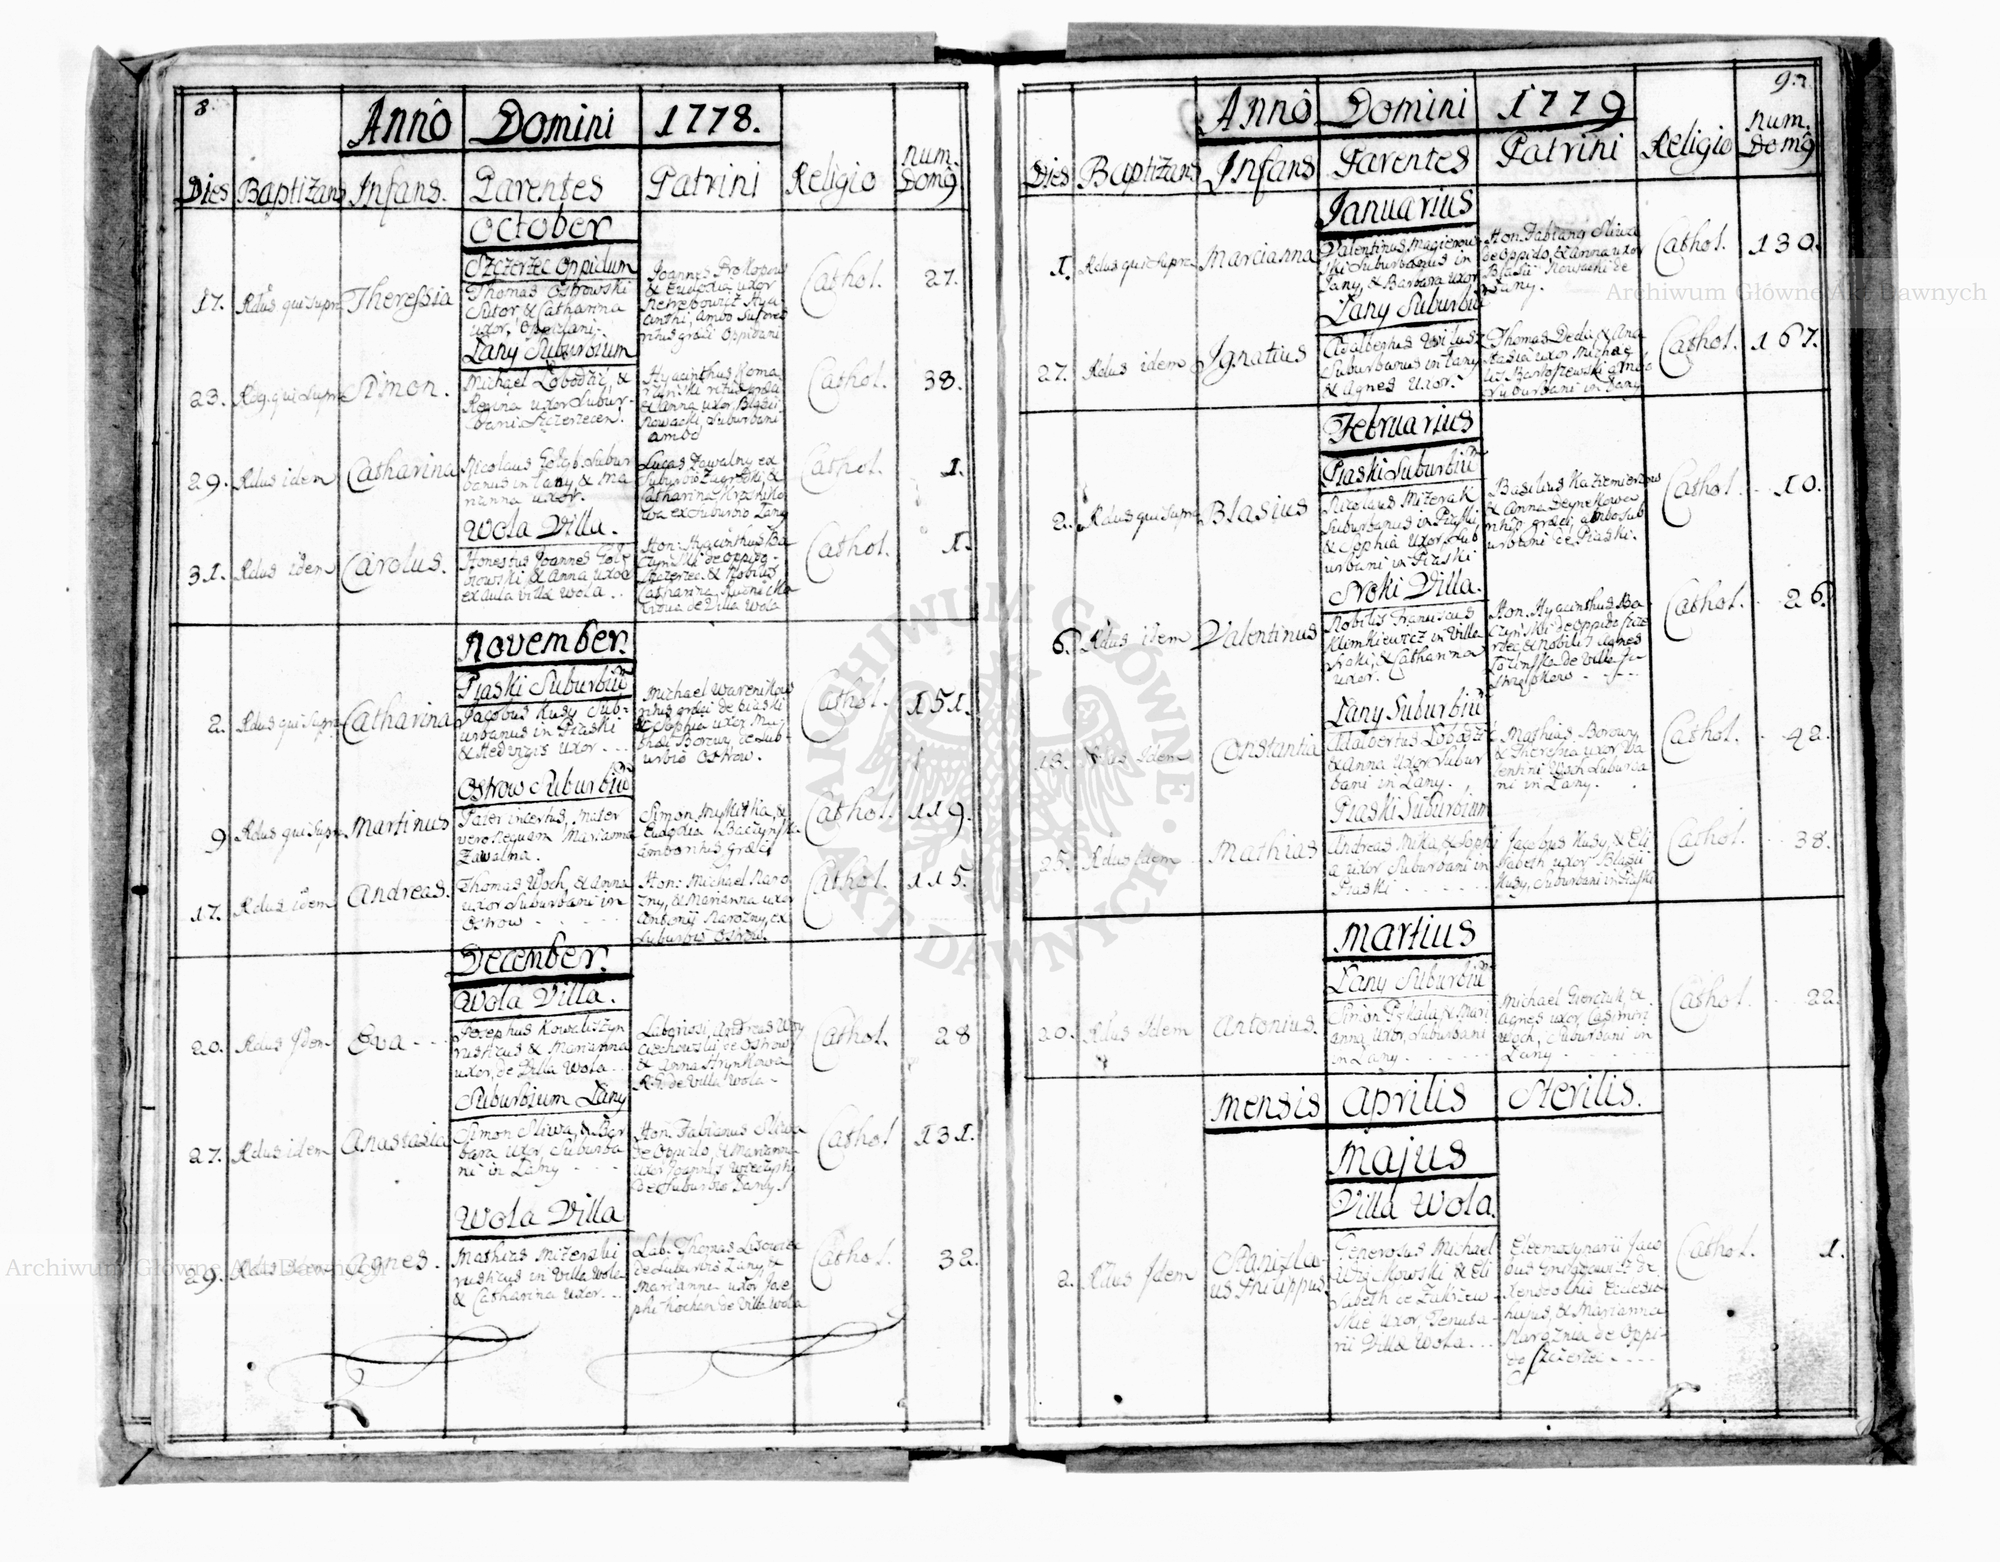 8.
Annô Domini 1778.
Dies Baptizans Infans. Parentes Patrini Religio num. Domg
October
Szczerzec Oppidum
17. Rdus qui supra Theressia
Thomas Ostrowski
Sutor, & Catharina
uxor, Oppidani.
Joannes Prokopow
& Eudodia uxor
Hyacinthi, ambo
ritus græci Oppidani
Cathol. 27.
Lany Suburbium
23. Rdg. qui supra Simon.
Michael Lobodzic, &
Regina uxor Subur-
bani Szczerzecen.
Hyacinthus Roma
& Anna uxor
Nowacki, Suburbani
ambo
Cathol. 38.
29. Rdus idem Catharina
Nicolaus Gołąb Subur
banus in Lany, & Ma
rianna uxor.
Lucas Zawalny ex
Suburbio &
Catharina
wa ex Suburbio Lany
Cathol. 1.
Wola Villa.
31. Rdus idem Carolus.
Honestus Joannes
& Anna uxor
ex aula villæ Wola..
Hon. Hyacinthus Ba
czyński de Oppido
Szczerzec. & Nobilis
Catharina
de Villa Wola
Cathol. 1.
November.
Piaski Suburbiū
2. Rdus qui supra Catharina
Jacobus Kusy Sub-
urbanus in Piaski
& Hedvigis uxor...
Michael Warenikow
ritus græci de Piaski
& Sophia uxor Ma-
thæi Borowy, de Sub-
urbio Ostrow.
Cathol. 151.
Ostrow Suburbiū
9 Rdus qui supra Martinus
Pater incertus, mater
vero nequam Marianna
Zawalna.
Simon Mykitka, &
Eudodia Baczynska
ambo ritus græci
Cathol. 119.
17. Rdus idem Andreas.
Thomas Woch, & Anna
uxor Suburbani in
Ostrow
Hon: Michael Naro
zny, & Marianna uxor
Antonij Narozny, ex
Suburbio Ostrow.
Cathol. 115.
December.
Wola Villa.
20. Rdus Idem Eva
Josephus Kowaliszyn
rusticus & Marianna
uxor, de Villa Wola..
Laboriosi, Andreas Woy
ciechowski de Ostrow
& Anna Hrynkowa
de Villa Wola
Cathol. 28
Suburbium Lany
27. Rdus idem Anastasia
Simon Sliwa, & Bar
bara uxor, Suburba
ni in Lany
Hon. Fabianus Sliwa
de Oppido, & Marianna
uxor Joannis
de Suburbio Lany
Cathol 131.
Wola Villa
29. Rdus idem Agnes.
Mathias Mizerski
rusticus in Villa Wola
& Catharina uxor...
Lab. Thomas
de Suburbio Lany, &
Marianna uxor Jose
phi de Villa Wola
Cathol. 32.
9.
Annô Domini 1779
Dies Baptizans Infans Parentes Patrini Religio num. Domg
Januarius
1. Rdus qui supra Marcianna
Valentinus Magierow
ski Suburbanus in
Lany, & Barbara uxor
Hon. Fabiang Sliwa
de Oppido, & Anna uxor
Blasii Nowacki de
Lany.
Cathol. 130.
Lany Suburbiū
27. Rdus idem Ignatius
Adalbertus
Suburbanus in Lany
& Agnes uxor.
Thomas Deda, & Ana
stasia uxor Michae
lis Bartoszewski ambo
Suburbani in Lany
Cathol. 167.
Februarius
Piaski Suburbiū
2. Rdus qui supra Blasius
Nicolaus Mizerak
Suburbanus in Piaski
& Sophia uxor, Sub
urbani in Piaski
Basilius Kazimierzow
& Anna Deynekowa
ritus græci, ambo sub
urbani de Piaski.
Cathol. 10.
Sroki Villa.
6. Rdus idem Valentinus
Nobilis Franciscus
Klimkiewicz in Villa
Sroki, & Catharina
uxor.
Hon. Hyacinthus Ba
czyński de Oppido Szcze
rzec & Nobilis Agnes
de Villa
Cathol. 26.
Lany Suburbiū
13. Rdus Idem Constantia
Adalbertus Lobodzic
& Anna uxor Subur
bani in Lany.
Mathias Borowy,
& Theressia uxor Va
lentini Woch Suburba
ni in Lany.
Cathol. 42.
Piaski Suburbium
25. Rdus Idem Mathias
Andreas Mika, & Sophi
a uxor Suburbani in
Piaski
Jacobus Kusy, & Eli
sabeth uxor Blasii
Kusy, Suburbani in Piaski
Cathol. 38.
Martius
Lany Suburbiū
20. Rdus Idem Antonius.
Simon & Mari
anna uxor, Suburbani
in Lany
Michael &
Agnes uxor Casimiri
Woch, Suburbani in
Lany
Cathol. 22.
Mensis Aprilis Sterilis.
Majus
Villa Wola.
2. Rdus Idem Stanisla-
us Philippus.
Generosus Michael
& Eli
sabeth de
uxor, Tenuta-
rii Villæ Wola...
Eleemosynarii Jaco
bus de
Xenodochio Ecclesiæ
hujus, & Marianna
Narozna de Oppi-
do Szczerzec
Cathol. 1.
Archiwum Główne Akt Dawnych
Archiwum Główne Akt Dawnych
ARCHIWUM GŁÓWNE AKT DAWNYCH